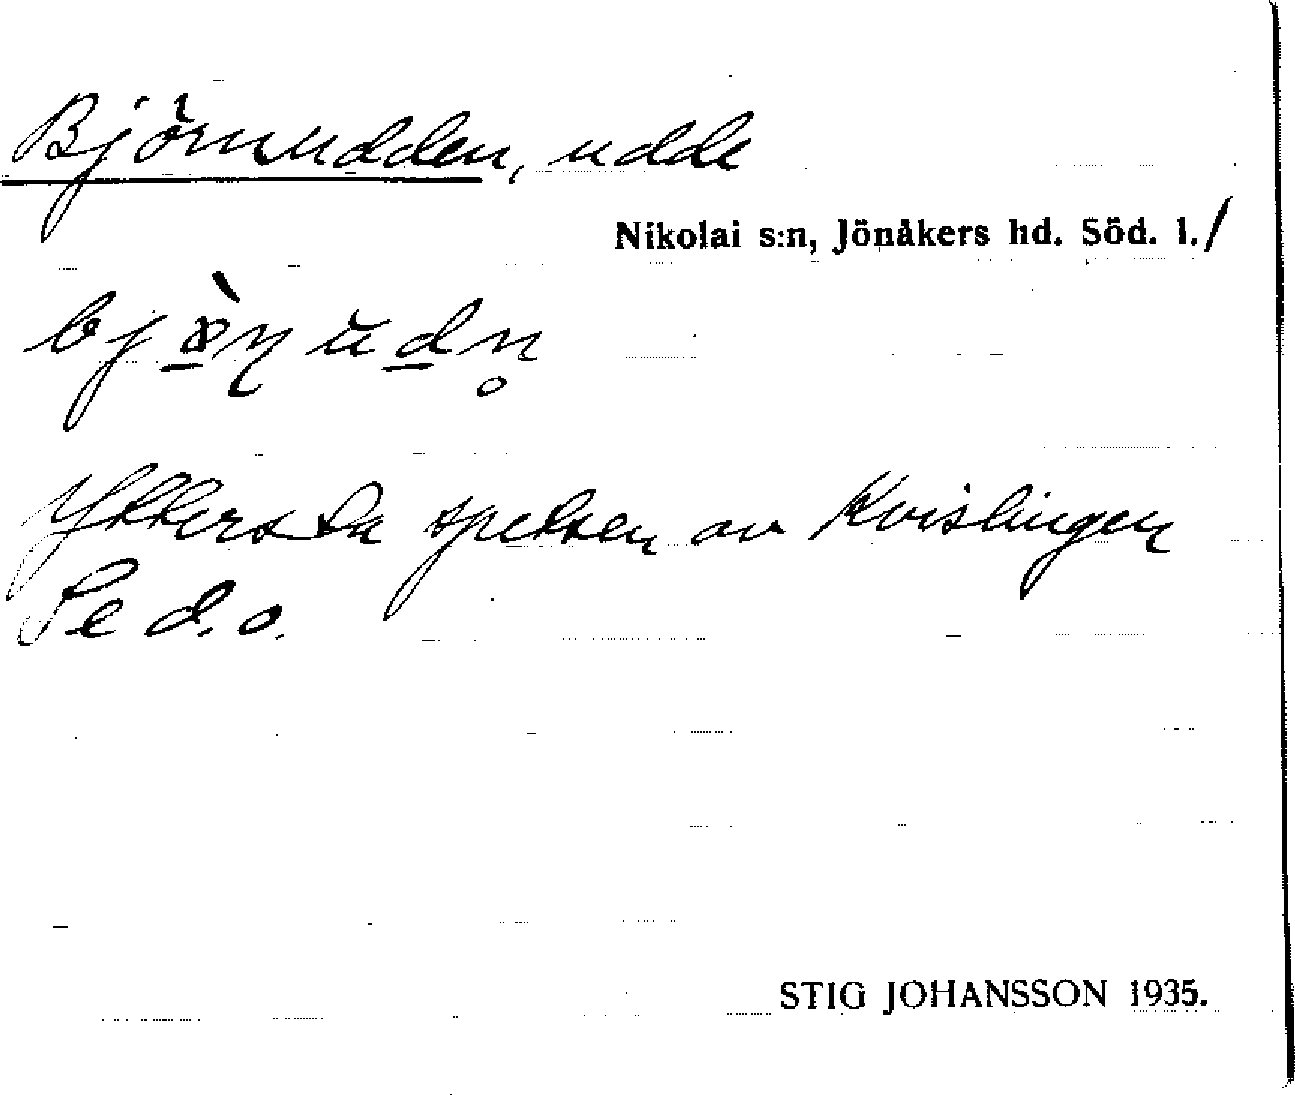 Björnudden, udde
Nikolai s:n, Jönåkers hd. Söd. l./
Yttersta spetsen av Kvislingen
Se d.o.
STIG JOHANSSON 1935.